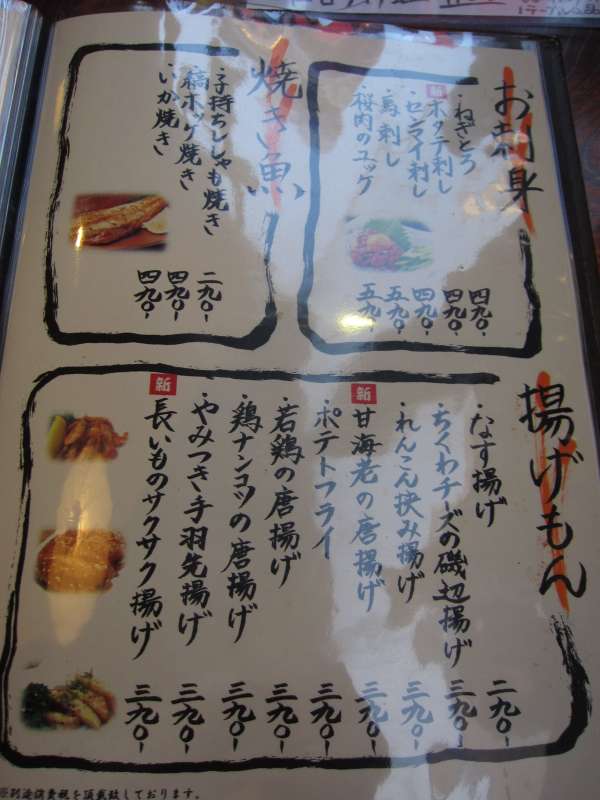 お刺身
・ねぎとろ 四九〇-
新 ・ホッキ刺し 四九〇-
・センマイ刺し 四九〇-
・馬刺し 五九〇-
・桜肉のユッケ 五九〇-
焼き魚
・子持ちししゃも焼き 二九〇-
・縞ホッケ焼き 四九〇-
・いか焼き 四九〇-
揚げもん
・なす揚げ 二九〇-
・ちくわチーズの磯辺揚げ 三九〇-
・れんこん挟み揚げ 三九〇-
新 ・甘海老の唐揚げ 三九〇-
・ポテトフライ 三九〇-
・若鶏の唐揚げ 三九〇-
・鶏ナンコツの唐揚げ 三九〇-
・やみつき手羽先揚げ 三九〇-
新 ・長いものサクサク揚げ 三九〇-
※別途消費税を頂戴致しております。